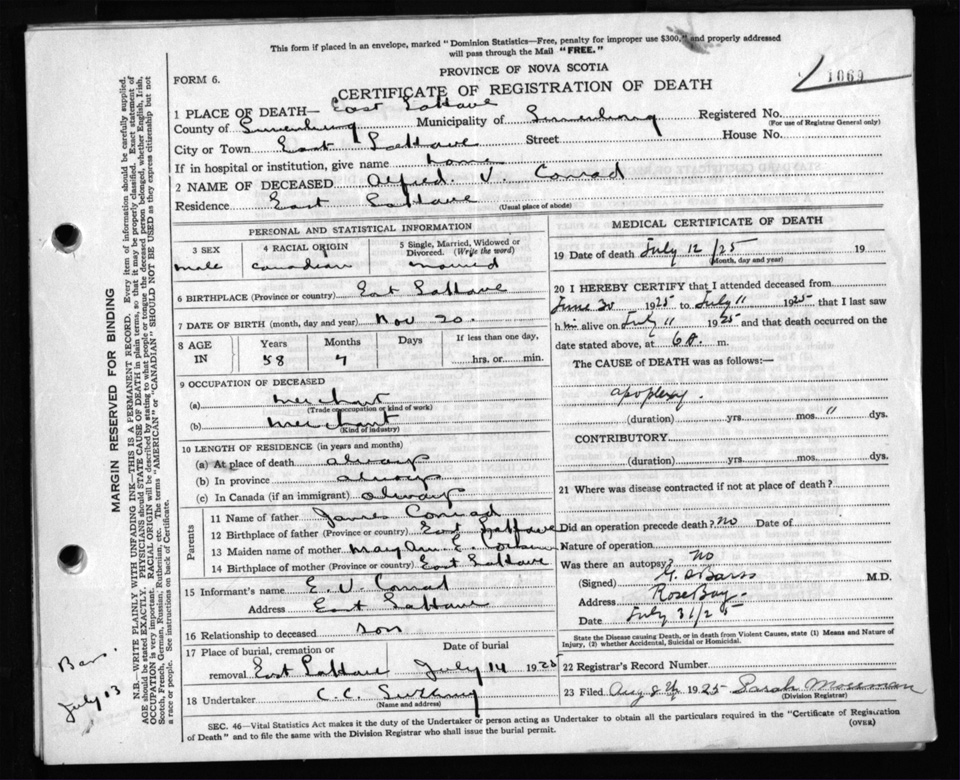 This form if placed in an envelope, marked "Dominion Statistics—Free, penalty for improper use $300," and properly addressed
will pass through the Mail "FREE."
PROVINCE OF NOVA SCOTIA
1069
FORM 6.
CERTIFICATE OF REGISTRATION OF DEATH
1 PLACE OF DEATH— East LaHave
County of Lunenburg Municipality of Lunenburg Registered No.
(For use of Registrar General only)
City or Town East LaHave Street House No.
If in hospital or institution, give name home
2 NAME OF DECEASED Alfred. V. Conrad
Residence East LaHave
(Usual place of abode)
PERSONAL AND STATISTICAL INFORMATION
3 SEX 4 RACIAL ORIGIN 5 Single, Married, Widowed or
Divorced. (Write the word)
male Canadian married
6 BIRTHPLACE (Province or country) East LaHave
7 DATE OF BIRTH (month, day and year) Nov 20
8 AGE IN Years Months Days If less than one day,
58 7 hrs. or min.
9 OCCUPATION OF DECEASED
(a) merchant
(Trade or occupation or kind of work)
(b) merchant
(Kind of industry)
10 LENGTH OF RESIDENCE (in years and months)
(a) At place of death always
(b) In province always
(c) In Canada (if an immigrant) always
Parents
11 Name of father James Conrad
12 Birthplace of father (Province or country) East LaHave
13 Maiden name of mother Mary Ann E.
14 Birthplace of mother (Province or country) East LaHave
15 Informant's name E V. Conrad
Address East LaHave
16 Relationship to deceased son
17 Place of burial, cremation or Date of burial
removal East LaHave July 14 1925
18 Undertaker C. C.
(Name and address)
MEDICAL CERTIFICATE OF DEATH
19 Date of death July 12/25 19
(Month, day and year)
20 I HEREBY CERTIFY that I attended deceased from
June 30 1925 to July 11 1925 that I last saw
him alive on July 11 1925 and that death occurred on the
date stated above, at 6 A. m.
The CAUSE OF DEATH was as follows:—
apoplexy.
(duration) yrs. mos. 11 dys.
CONTRIBUTORY
(duration) yrs. mos. dys.
21 Where was disease contracted if not at place of death?
Did an operation precede death? no Date of
Nature of operation
Was there an autopsy? no
(Signed) M.D.
Address Rose Bay
Date July 31/25
State the Disease causing Death, or in death from Violent Causes, state (1) Means and Nature of
Injury, (2) whether Accidental, Suicidal or Homicidal.
22 Registrar's Record Number
23 Filed Aug 8th 1925 Sarah Mosman
(Division Registrar)
SEC. 46—Vital Statistics Act makes it the duty of the Undertaker or person acting as Undertaker to obtain all the particulars required in the "Certificate of Registration
of Death" and to file the same with the Division Registrar who shall issue the burial permit.
(OVER)
MARGIN RESERVED FOR BINDING
N.B.—WRITE PLAINLY WITH UNFADING INK—THIS IS A PERMANENT RECORD. Every item of information should be carefully supplied.
AGE should be stated EXACTLY. PHYSICIANS should STATE CAUSE OF DEATH in plain terms, so that it may be properly classified. Exact statement of
OCCUPATION is very important. RACIAL ORIGIN will be described by stating to what people or tongue the deceased person belonged, whether English, Irish,
Scotch, French, German, Russian, Ruthenian, etc. The terms "AMERICAN" or "CANADIAN" SHOULD NOT BE USED as they express citizenship but not
a race or people. See instructions on back of Certificate.
July 13